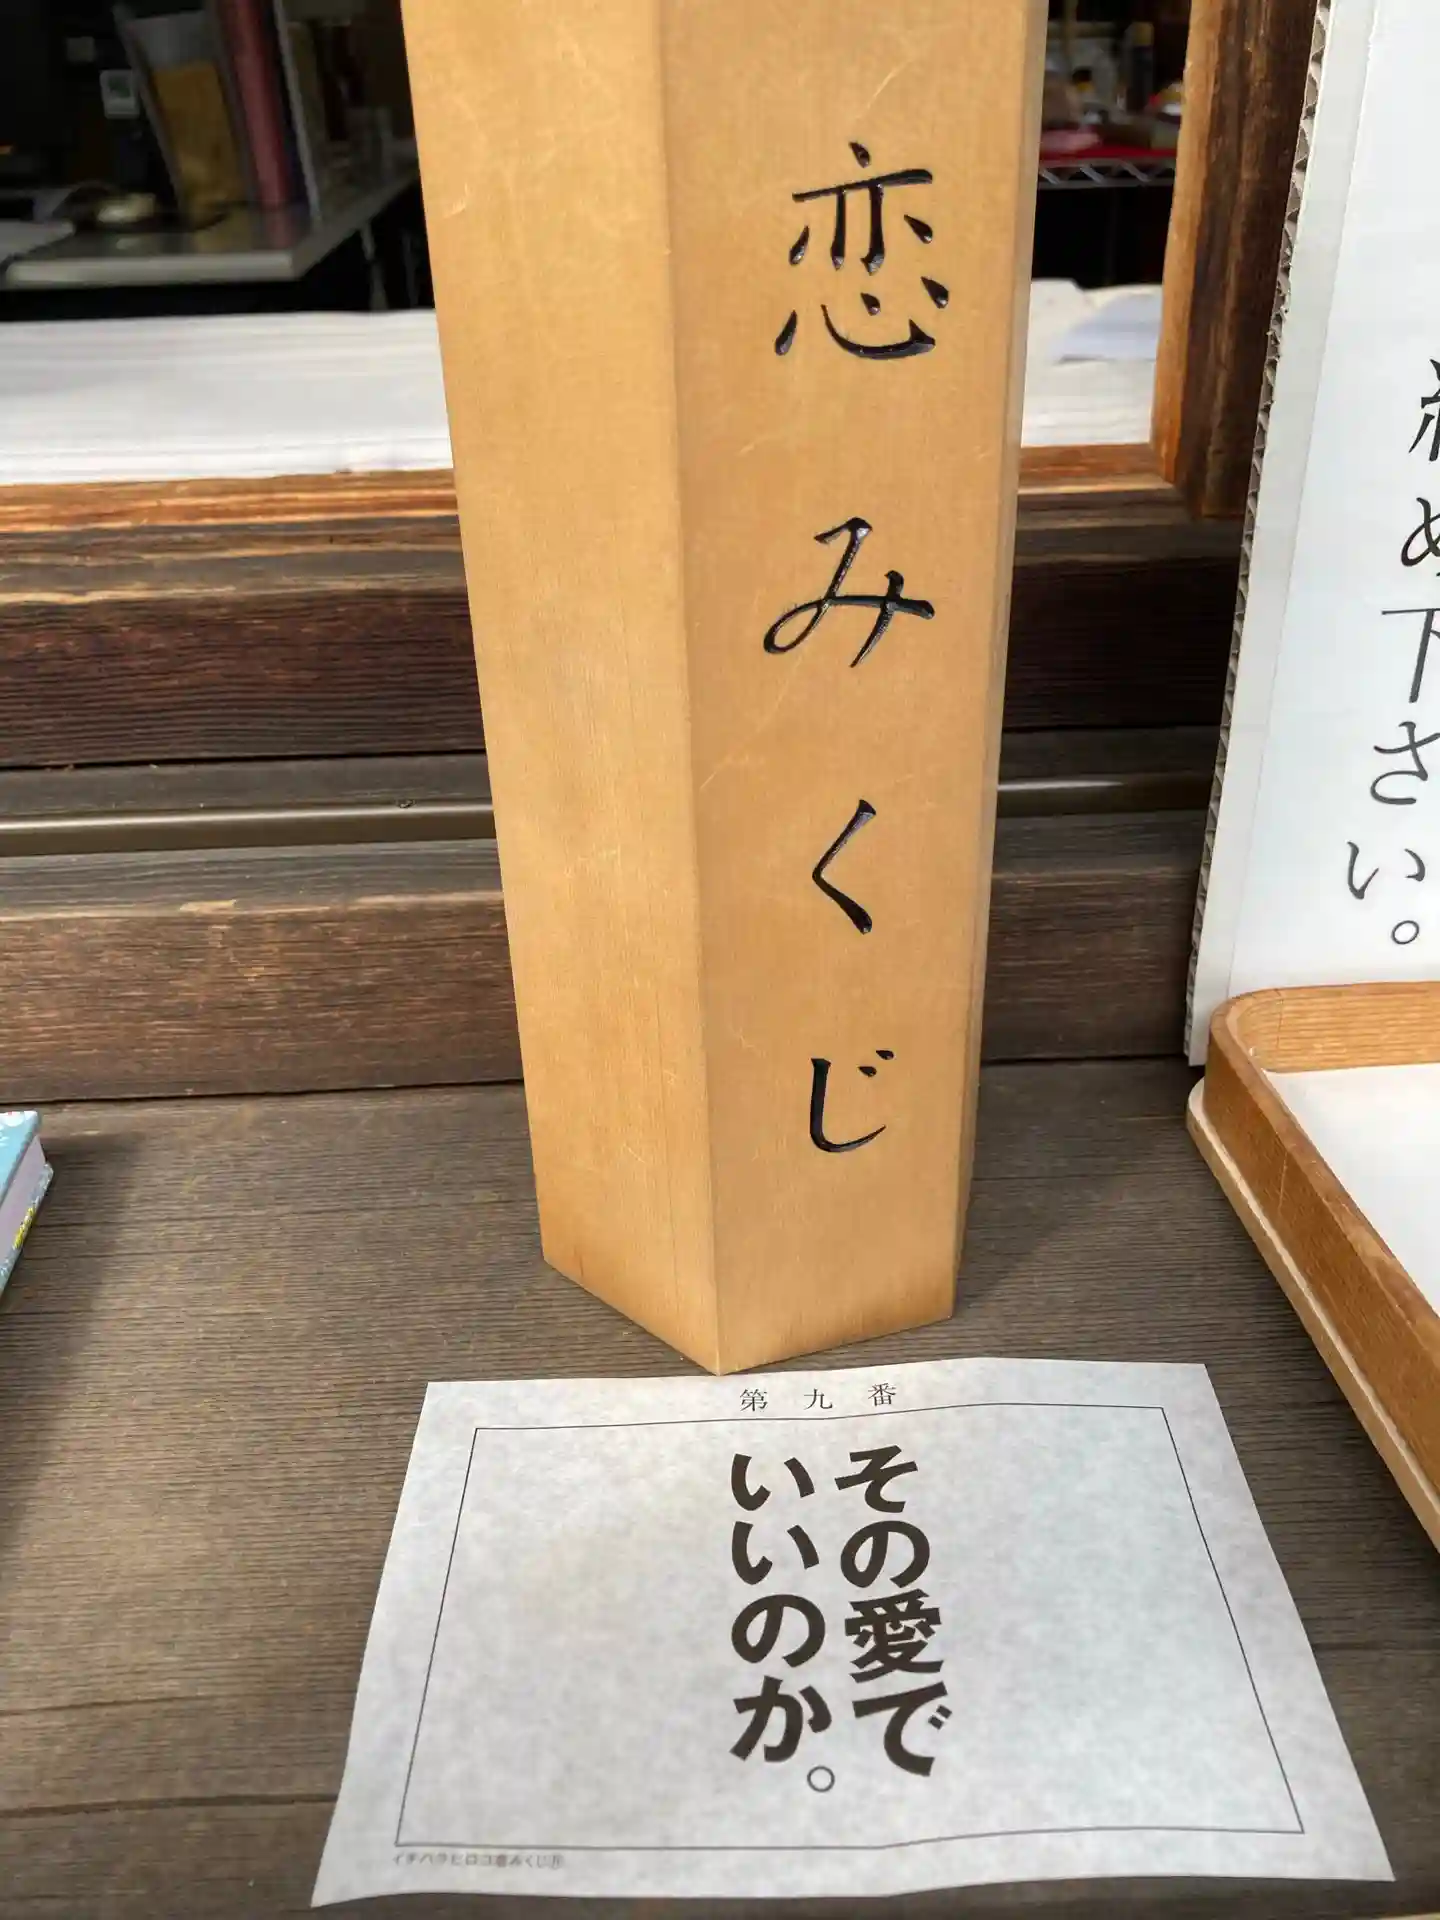 恋みくじ
め下さい。
第九番
その愛で
いいのか。
イチハラヒロコ恋みくじⓇ